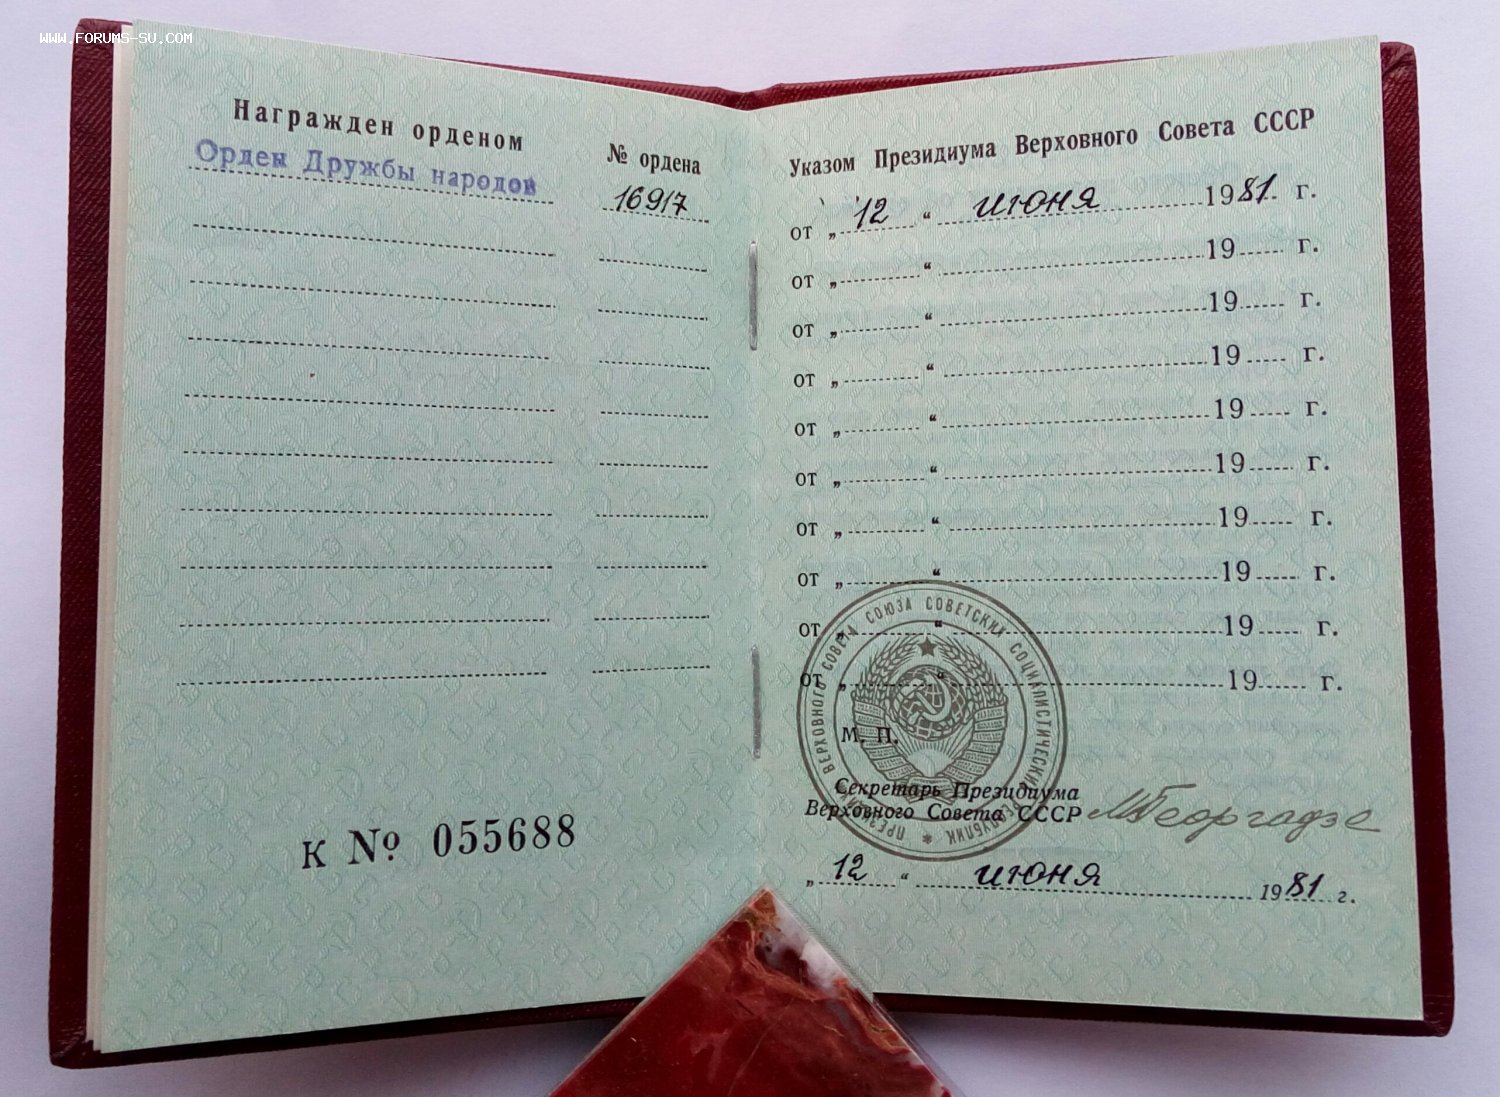 WWW.FORUMS-SU.COM
Награжден орденом
Орден Дружбы народов
№ ордена
16917
К № 055688
Указом Президиума Верховного Совета СССР
от „ 12 “ июня 1981 г.
от „ “ 19 г.
от „ “ 19 г.
от „ “ 19 г.
от „ “ 19 г.
от „ “ 19 г.
от „ “ 19 г.
от „ “ 19 г.
от „ “ 19 г.
от „ “ 19 г.
ПРЕЗИДИУМ ВЕРХОВНОГО СОВЕТА СОЮЗА СОВЕТСКИХ СОЦИАЛИСТИЧЕСКИХ РЕСПУБЛИК
М. П.
Секретарь Президиума
Верховного Совета СССР МГеоргадзе
„ 12 “ июня 1981 г.